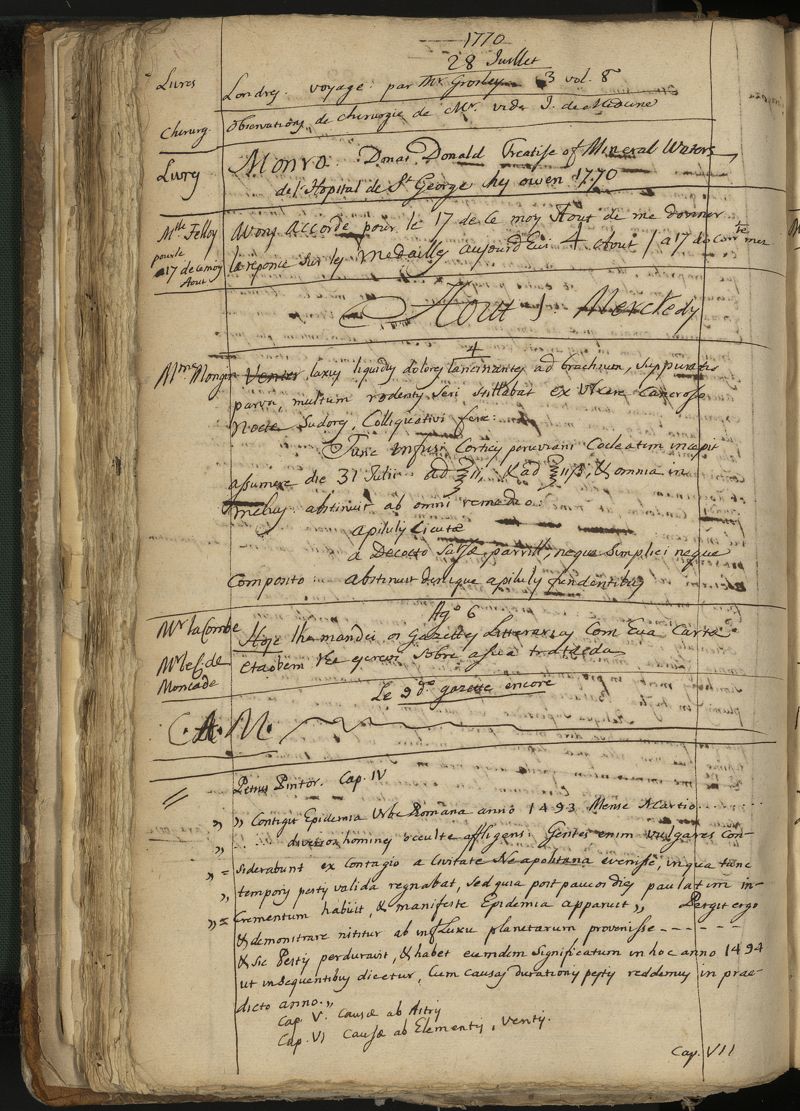 1770
28 Juillet
Livres Londres. voyage: par Mr Grosley 3 vol. 8°
Chirurg. Observations de chirurgie de Mr. vide J. de Medecine
Livres Monro: Donal Donald Treatise of Mineral Waters
de l'Hopital de St George chez owen 1770
Mlle Felloy Avons accordé pour le 17 de ce moy Aout de me donner
pour le
a 17 de ce moy la reponce sur les medailles aujourd'eui 4 about
Aout
Aout 1 Merckedy
4
Mme Mongin Venter laxus liquidis dolores lancinantes ad brachium, suppuratio
parva, multum rodentis seri stillabat ex ulcere Cancroso
Nocte Sudores, Colliquativi fere:
Tunc infusi Corticis peruviani Cocleatim incepit
assumere die 31 Julii ad ℥ii, & ad ℥iiß, & omnia in
melius abstinuit ab omni remedio:
a pilulis Cicutæ
a Decocto Salsæ parrill, neque simplici neque
Composito: abstinuit denique a pilulis fundentibus
Ago 6
Mr la Combe Hoje lhe mandei os Gazettes Litterarias Com Eua Carta
Mr le C. de etaobem sobre
Moncade
Le 9 do gazette encore
C.A.M.
Petrus Pintor. Cap. IV
„ „ Contigit Epidemia Urbe Romana anno 1493 Mense Martio . . . . .
„ . . . diversos homines occulte affligens: Gentes enim vulgares Con-
„ = siderabunt ex contagio a Civitate Neapolitana evenisse, in qua tunc
„ temporis pestis valida regnabat, sed quia post paucos dies paulatim in-
„ = Crementum habuit, & manifeste Epidemia apparuit „ Pergit ergo
& demonstrare nititur ab influxu planetarum provenisse - - - - - - -
& sic Pestis perduravit, & habet eumdem significatum in hoc anno 1494
ut in sequentibus dicetur, Cum causas durationis pestis reddemus in prae-
dicto anno. „
Cap. V. Causæ ab Astris
Cap. VI Causæ ab Elementis, ventis.
Cap. VII